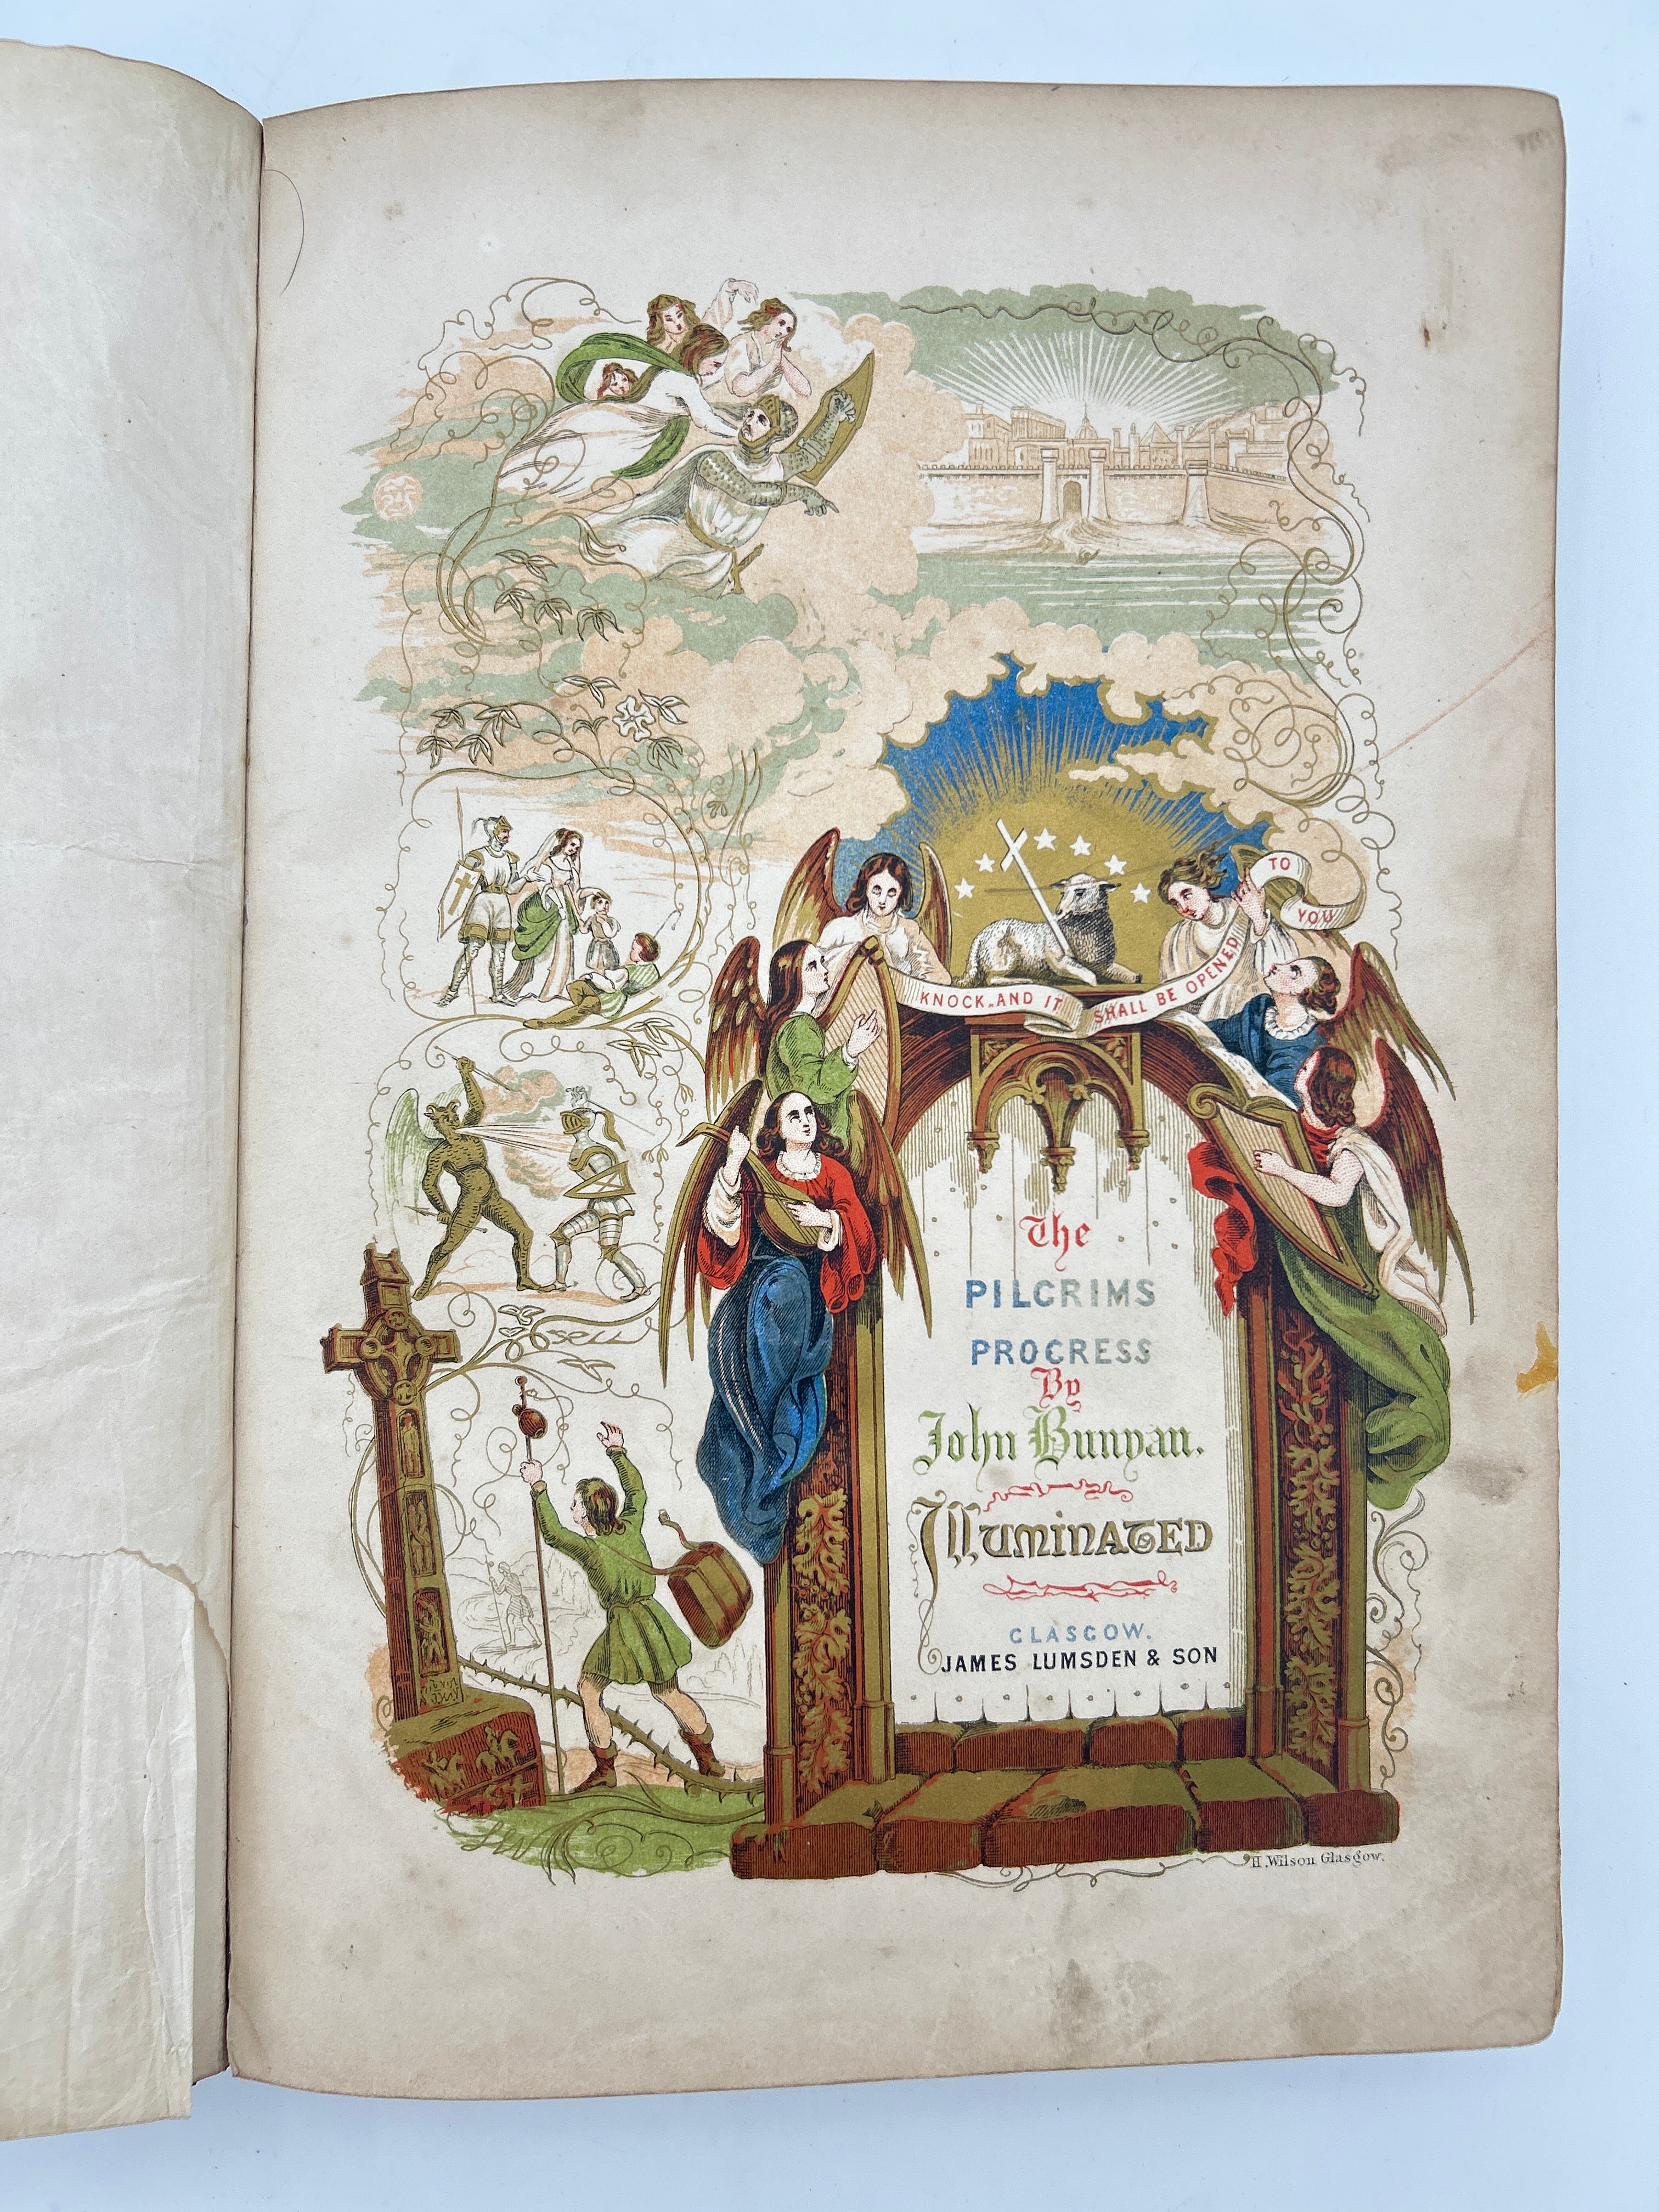 KNOCK AND IT SHALL BE OPENED TO YOU
The
PILGRIMS
PROGRESS
By
John Bunyan.
Illuminated
GLASGOW.
JAMES LUMSDEN & SON
H. Wilson Glasgow.